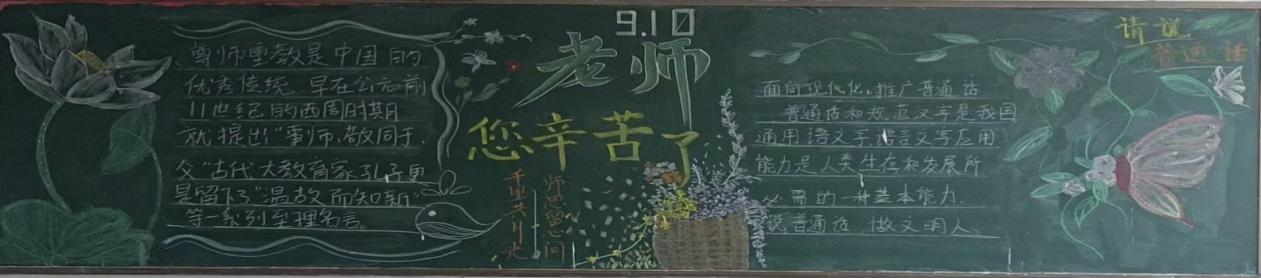 尊师重教是中国的
优秀传统 早在公元前
11世纪的西周时期
就提出"事师,敬同于
父"古代大教育家孔子更
是留下了"温故而知新"
等一系列至理名言
9.10
老师
您辛苦了
师恩
千里共月光
面向现代化,推广普通话
普通话和规范汉字是我国
通用语文字,语言文字应用
能力是人类生存和发展所
必需的一种基本能力.
说普通话 做文明人.
请说
普通话